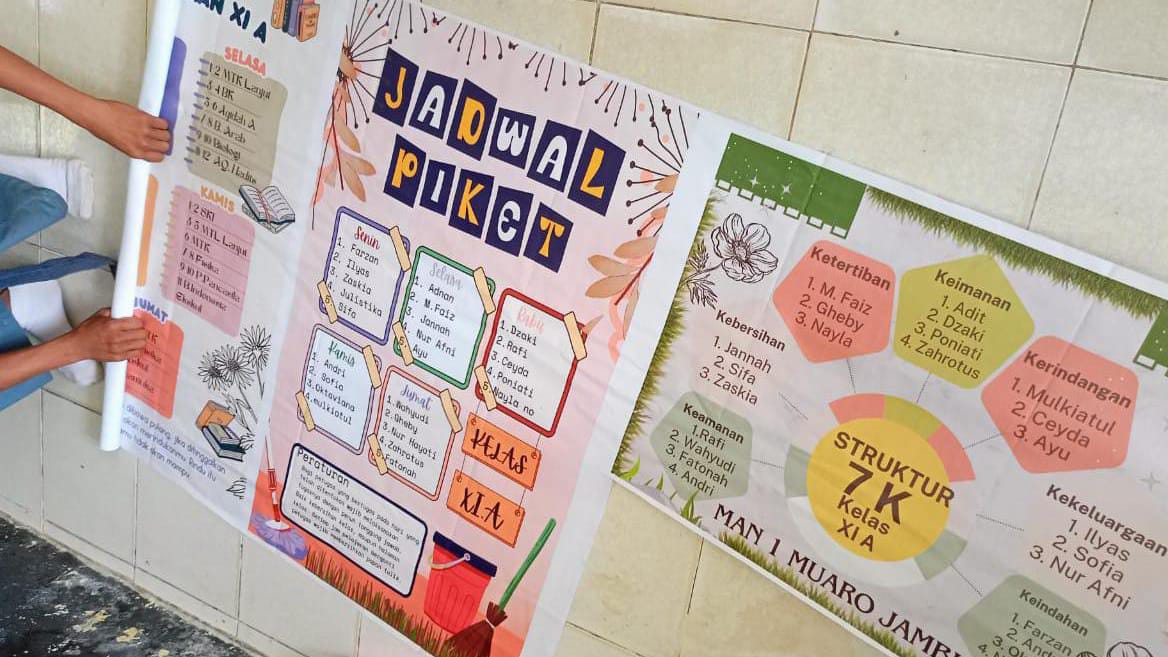 AN XI A
SELASA
1-2 MTK Lanjut
3-4 BK
5-6 Aqidah A
7-8 B. Arab
9-10 Biologi
11-12 AQ. Hadits
KAMIS
1-2 SKI
3-5 MTL Lanjut
6 MTK
7-8 Fisika
9-10 P.Pancasila
Ekskul
JUMAT
JADWAL
PIKET
Senin
1. Farzan
2. Ilyas
3. Zaskia
4. Julistika
5. Sifa
Selasa
1. Adnan
2. M.Faiz
3. Jannah
4. Nur Afni
5. Ayu
Rabu
1. Dzaki
2. Rafi
3. Ceyda
4. Poniati
5. Nayla no
Kamis
1. Andri
2. Sofia
3. Oktaviana
4. mulkiatul
Jumat
1. Wahyudi
2. Gheby
3. Nur Hayati
4. Zahrotus
5. Fatonah
KELAS
XI.A
Peraturan
Bagi petugas yang bertugas pada hari yang
telah ditentukan wajib melaksanakan
tugasnya dengan penuh tanggung jawab.
Baik kebersihan kelas, maupun halaman
kelas. Setiap jam pelajaran mengganti
petugas wajib membersihkan papan tulis.
Ketertiban
1. M. Faiz
2. Gheby
3. Nayla
Keimanan
1. Adit
2. Dzaki
3. Poniati
4. Zahrotus
Kebersihan
1. Jannah
2. Sifa
3. Zaskia
Kerindangan
1. Mulkiatul
2. Ceyda
3. Ayu
Keamanan
1.Rafi
2. Wahyudi
3. Fatonah
4. Andri
STRUKTUR
7K
Kelas
XI A
Kekeluargaan
1. Ilyas
2. Sofia
3. Nur Afni
Keindahan
1. Farzan
MAN 1 MUARO JAMBI